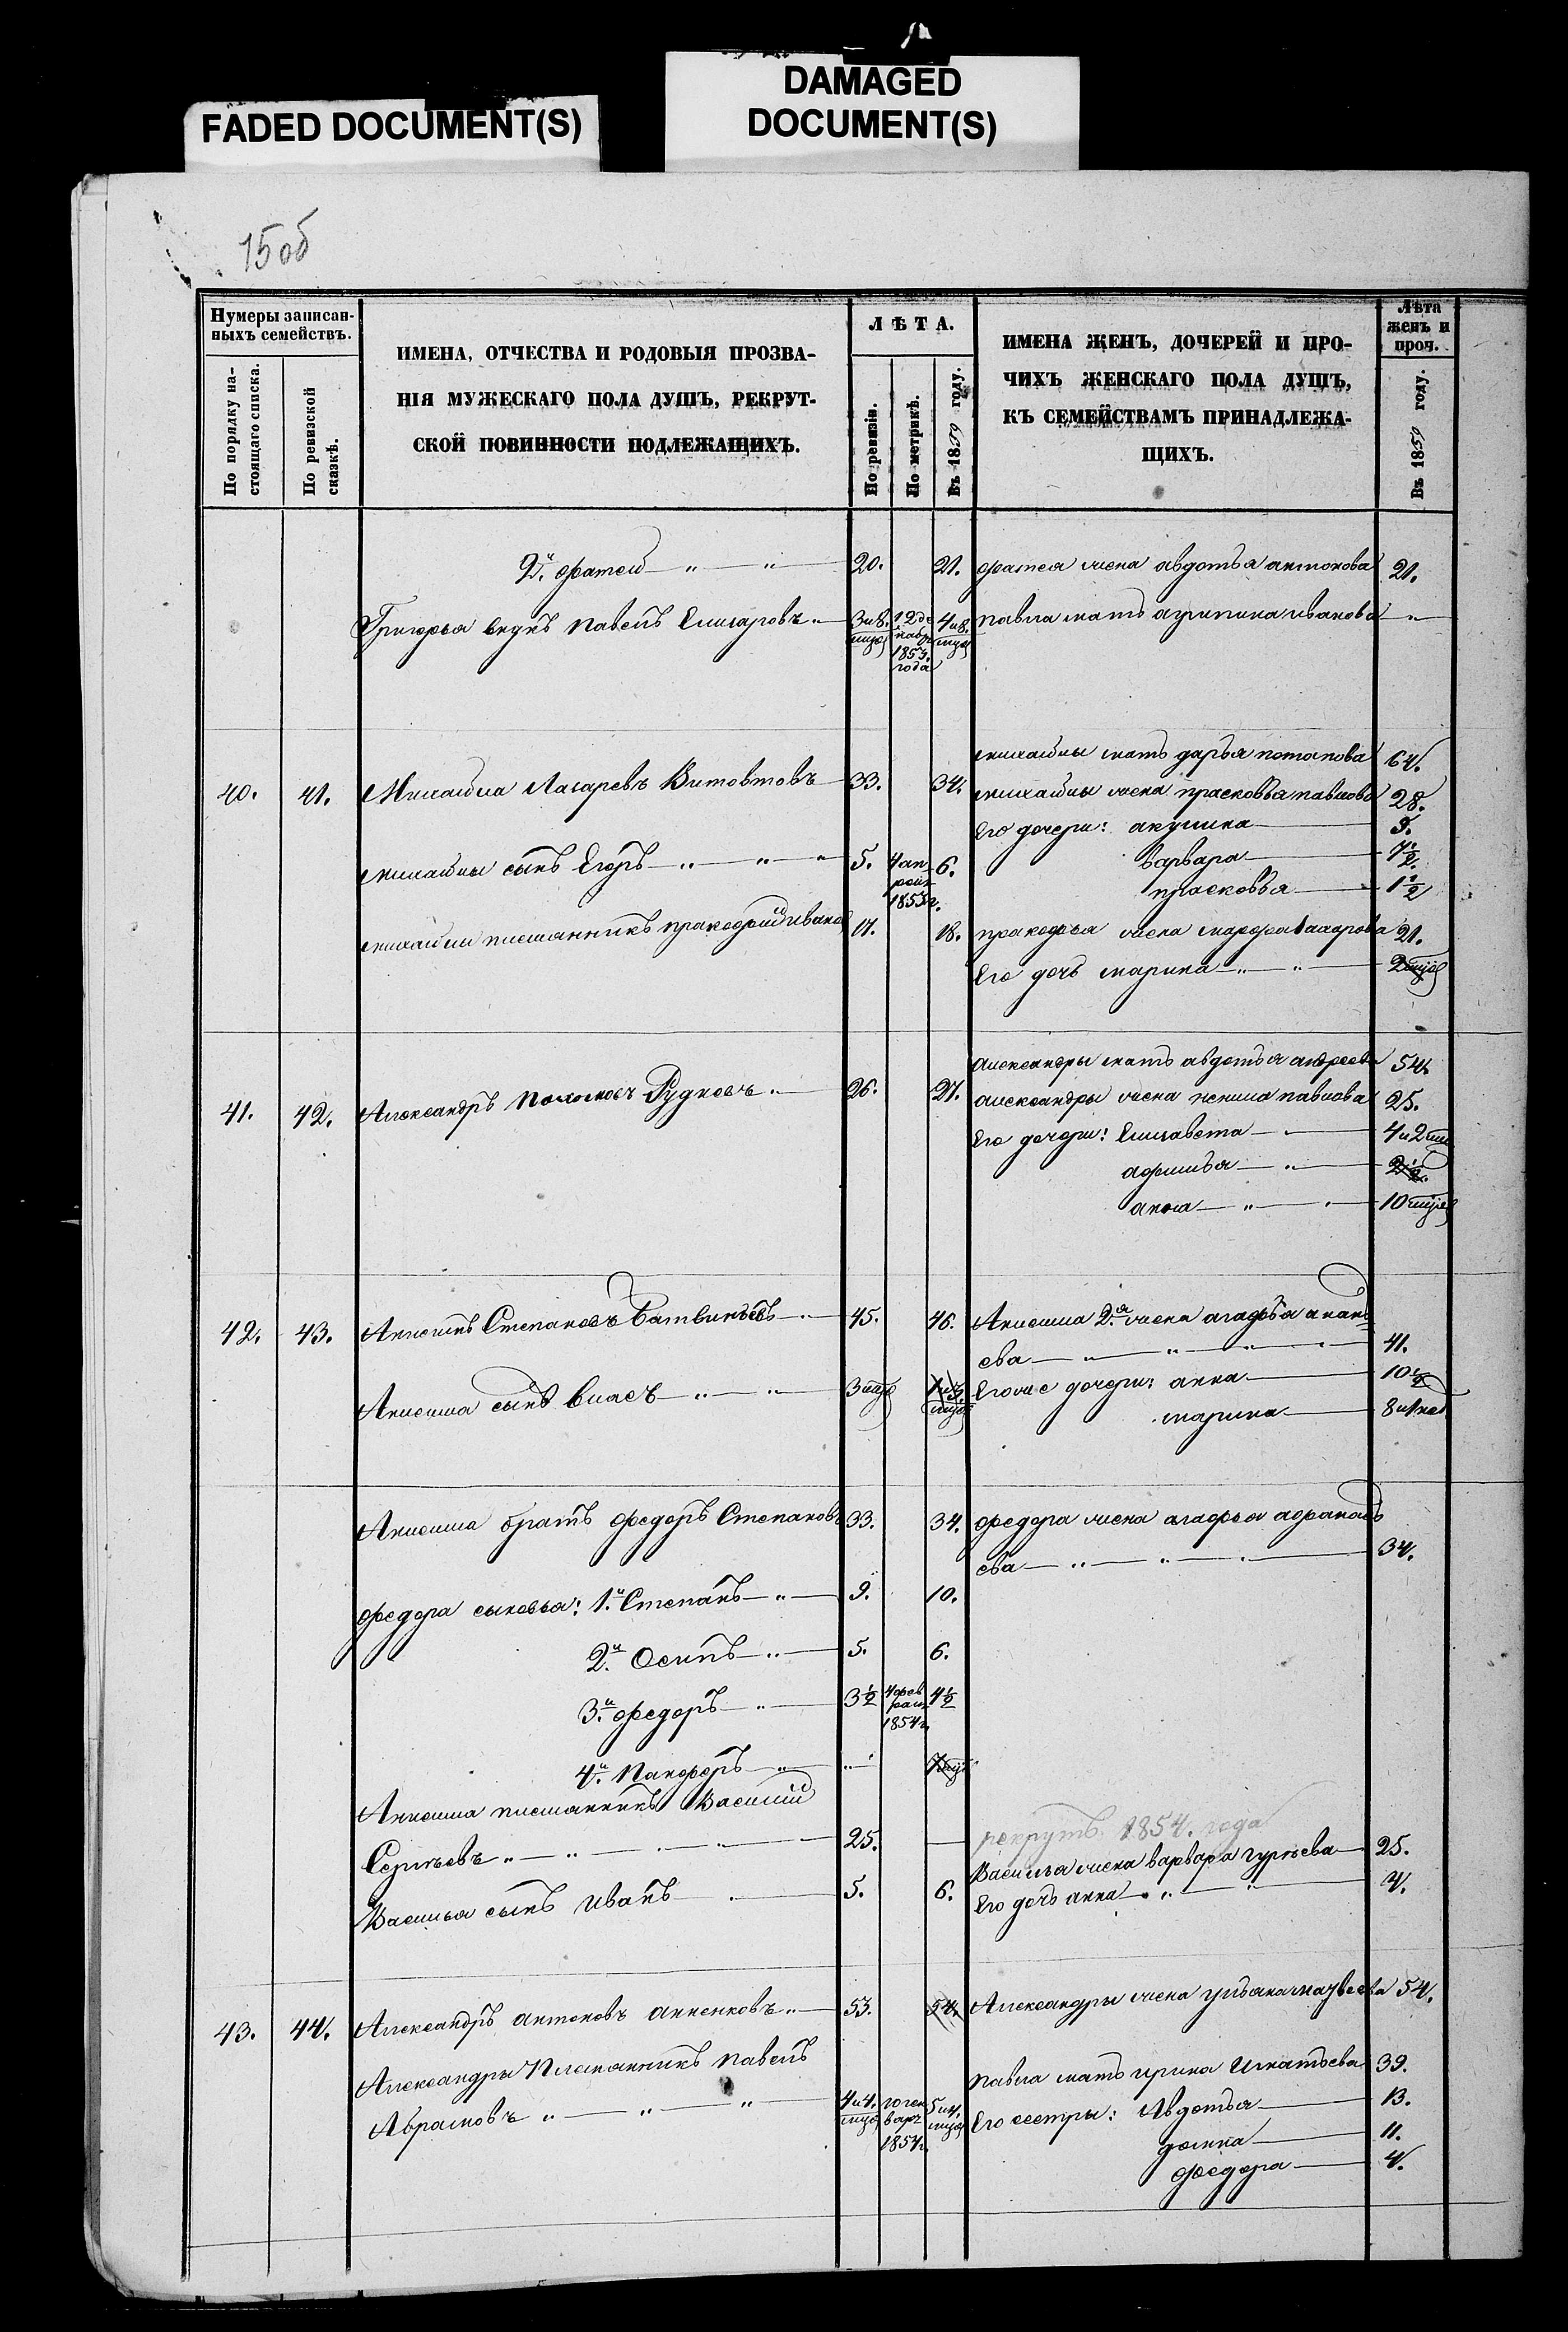 FADED DOCUMENT(S)
DAMAGED
DOCUMENT(S)
15 об
Нумеры записан-
ныхъ семействъ.
По порядку на-
стоящаго списка.
По ревизской
сказкѣ.
ИМЕНА, ОТЧЕСТВА И РОДОВЫЯ ПРОЗВА-
НІЯ МУЖЕСКАГО ПОЛА ДУШЪ, РЕКРУТ-
СКОЙ ПОВИННОСТИ ПОДЛЕЖАЩИХЪ.
ЛѢТА.
По ревизіи.
По метрикѣ.
Въ 1859 году.
ИМЕНА ЖЕНЪ, ДОЧЕРЕЙ И ПРО-
ЧИХЪ ЖЕНСКАГО ПОЛА ДУШЪ,
КЪ СЕМЕЙСТВАМЪ ПРИНАДЛЕЖА-
ЩИХЪ.
Лѣта
женъ и
проч.
Въ 1859 году.
2й. фатей 20. 21. фатея жена авдотья антонова 21.
Григорья внукъ павелъ Елизаровъ 3 и 8. мцов 12 де кабр 1853. года 4 и 8. мцов павла мать агрипина иванова
михайлы мать дарья потапова 64.
40. 41. Михайла Лазаревъ Витовтовъ 33. 34. михайлы жена прасковья павлова 28.
Его дочери: акулина 9.
михайлы сынъ Егоръ 5. 4 ап рѣля 1853 г. 6. варвара 7 1/2.
прасковья 1 1/2
михайлы племянникъ пракофий иванов 17. 18. пракофья жена марфа 21.
Его дочь марина 2 мцов
александры мать авдотья андреева 54.
41. 42. Александръ Рудковъ 26. 27. александры жена павлова 25.
Его дочери: Елизавета 4 и 2 мца
афимья 2 1/2.
анна 10 мцов
42. 43. Анисимъ Степановъ Батвиньевъ 45. 46. Анисима 2я. жена агафья анань
ева 41.
Анисима сынъ власъ 3 мцов мцов Егоже дочери: анна 10 1/2
марина 8 и 1 нед
Анисима братъ федоръ Степановъ 33. 34. федора жена агафья афанась
ева 34.
федора сыновья: 1й. Степанъ 9. 10.
2й. Осипъ 5. 6.
3й. федоръ 3 1/2 4 фев раля 1854 г. 4 1/2
4й. Панфоръ
Анисима племянникъ Василий
Сергѣевъ 25. рекрутъ 1854. года
Василья жена варвара гурьева 25.
Василья сынъ иванъ 5. 6. Его дочь анна 4.
43. 44. Александръ антоновъ анненковъ 53. 54. Александры жена ульяна матвеева 54.
Александры Племянникъ павелъ
Абрамовъ 4 и 4. мцов 10 ген варя 1854 г. 5 и 4. мцов
павла мать ирина Игнатьева 39.
Его сестры: Авдотья 13.
домна 11.
федора 4.